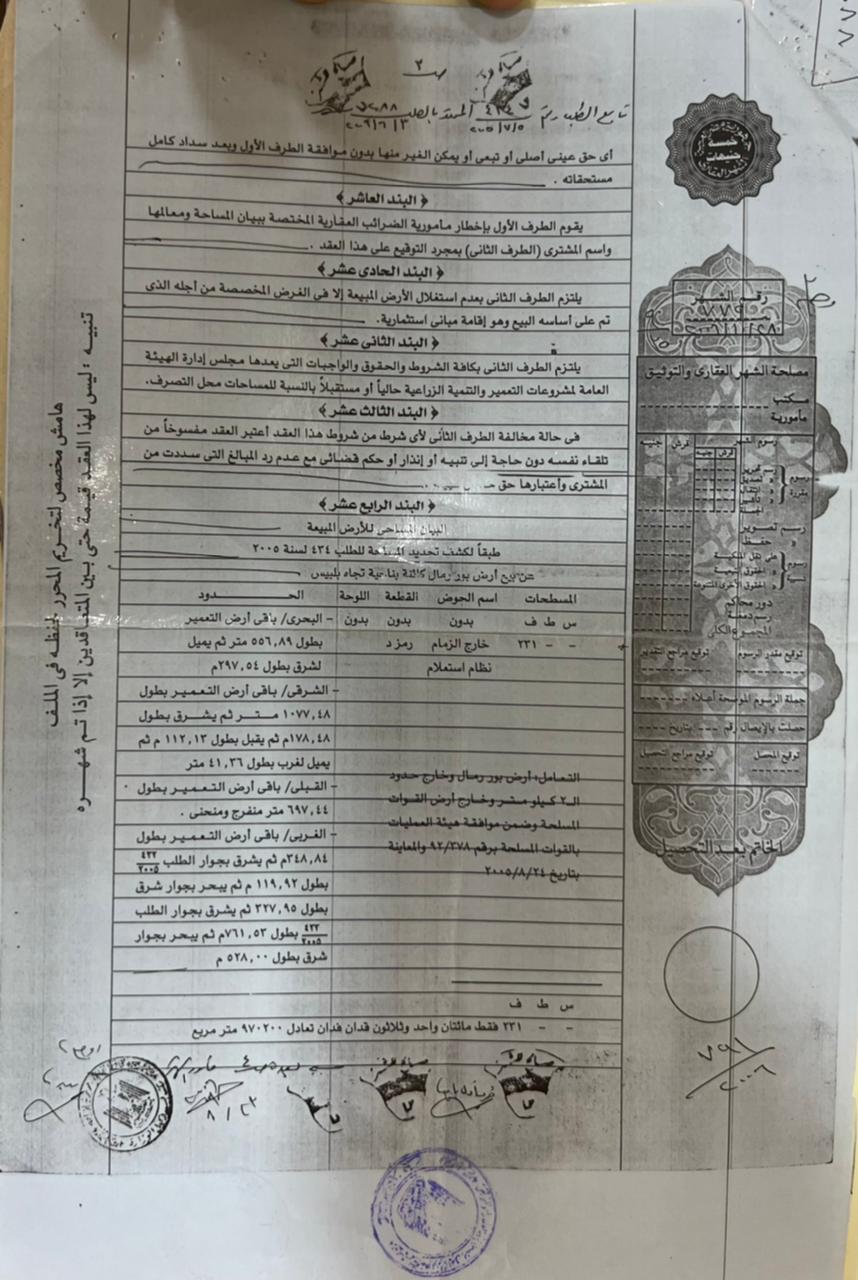 تابع الطلب رقم ٤٣٤
٢٠٠٥/٧/٥
٢
خمسة
جنيهات
أى حق عينى أصلى أو تبعى أو يمكن الغير منها بدون موافقة الطرف الأول وبعد سداد كامل
مستحقاته .
﴿ البند العاشر ﴾
يقوم الطرف الأول بإخطار مأمورية الضرائب العقارية المختصة ببيان المساحة ومعالمها
واسم المشترى (الطرف الثانى) بمجرد التوقيع على هذا العقد .
﴿ البند الحادى عشر ﴾
يلتزم الطرف الثانى بعدم استغلال الأرض المبيعة إلا فى الغرض المخصصة من أجله الذى
تم على أساسه البيع وهو إقامة مبانى استثمارية.
﴿ البند الثانى عشر ﴾
يلتزم الطرف الثانى بكافة الشروط والحقوق والواجبات التى يعدها مجلس إدارة الهيئة
العامة لمشروعات التعمير والتنمية الزراعية حالياً أو مستقبلاً بالنسبة للمساحات محل التصرف.
﴿ البند الثالث عشر ﴾
فى حالة مخالفة الطرف الثانى لأى شرط من شروط هذا العقد أعتبر العقد مفسوخاً من
تلقاء نفسه دون حاجة إلى تنبيه أو إنذار أو حكم قضائى مع عدم رد المبالغ التى سددت من
المشترى وأعتبارها حق
﴿ البند الرابع عشر ﴾
البيان المساحى للأرض المبيعة
طبقاً لكشف تحديد المساحة للطلب ٤٣٤ لسنة ٢٠٠٥
عن بيع أرض بور رمال كائنة بناحية تجاه بلبيس
المسطحات اسم الحوض القطعة اللوحة الحـــدود
س ط ف بدون بدون بدون – البحرى/ باقى أرض التعمير
- - ٢٣١ خارج الزمام رمز د بطول ٥٥٦,٨٩ متر ثم يميل
نظام استعلام لشرق بطول ٢٩٧,٥٤م
– الشرقى/ باقى أرض التعمير بطول
١٠٧٧,٤٨ متر ثم يشرق بطول
١٧٨,٤٨م ثم يقبل بطول ١١٢,١٣ م ثم
يميل لغرب بطول ٤١,٣٦ متر
التعامل: أرض بور رمال وخارج حدود
– القبلى/ باقى أرض التعمير بطول
الـ٢ كيلو متر وخارج أرض القوات
٦٩٧,٤٤ متر منفرج ومنحنى .
المسلحة وضمن موافقة هيئة العمليات
– الغربى/ باقى أرض التعمير بطول
بالقوات المسلحة برقم ٩٢/٣٧٨ والمعاينة
٣٤٨,٨٤م ثم يشرق بجوار الطلب ٤٢٢/٢٠٠٥
بتاريخ ٢٠٠٥/٨/٢٤
بطول ١١٩,٩٢ م ثم يبحر بجوار شرق
بطول ٣٢٧,٩٥ ثم يشرق بجوار الطلب
٤٢٢/٢٠٠٥ بطول ٧٦١,٥٣م ثم يبحر بجوار
شرق بطول ٥٢٨,٠٠ م
س ط ف
- - ٢٣١ فقط مائتان واحد وثلاثون فدان فدان تعادل ٩٧٠٢٠٠ متر مربع
رقم الشهر
٧٧٩
٢٠٠٦/١٠/٢٨
مصلحة الشهر العقارى والتوثيق
مكتب
مأمورية
رسوم الشهر
قرش جنيه
رسوم مقررة
رسم تصوير
" حفظ
رسوم نسبية
على نقل الملكية
الحقوق التبعية
الحقوق الأخرى المتنوعة
دور محاكم
رسم دمغة
المجموع الكلى
توقيع مقدر الرسوم توقيع مراجع التقدير
جملة الرسوم الموضحة أعلاه
حصلت بالإيصال رقم بتاريخ
توقيع المحصل توقيع مراجع التحصيل
الخاتم بعد التحصيل
٧٩١
٢٠٠٦
هامش مخصص لتخريم المحور لحفظه فى الملف
تنبيه : ليس لهذا العقد قيمة حتى بين المتعاقدين إلا إذا تم شهره